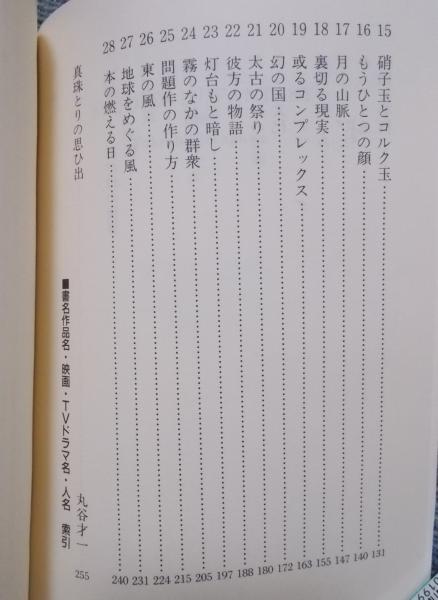 15 硝子玉とコルク玉 131
16 もうひとつの顔 140
17 月の山脈 147
18 裏切る現実 155
19 或るコンプレックス 163
20 幻の国 172
21 太古の祭り 180
22 彼方の物語 188
23 灯台もと暗し 197
24 霧のなかの群衆 205
25 問題作の作り方 215
26 東の風 224
27 地球をめぐる風 231
28 本の燃える日 240
真珠とりの思ひ出 丸谷才一 255
■書名作品名・映画・TVドラマ名・人名 索引